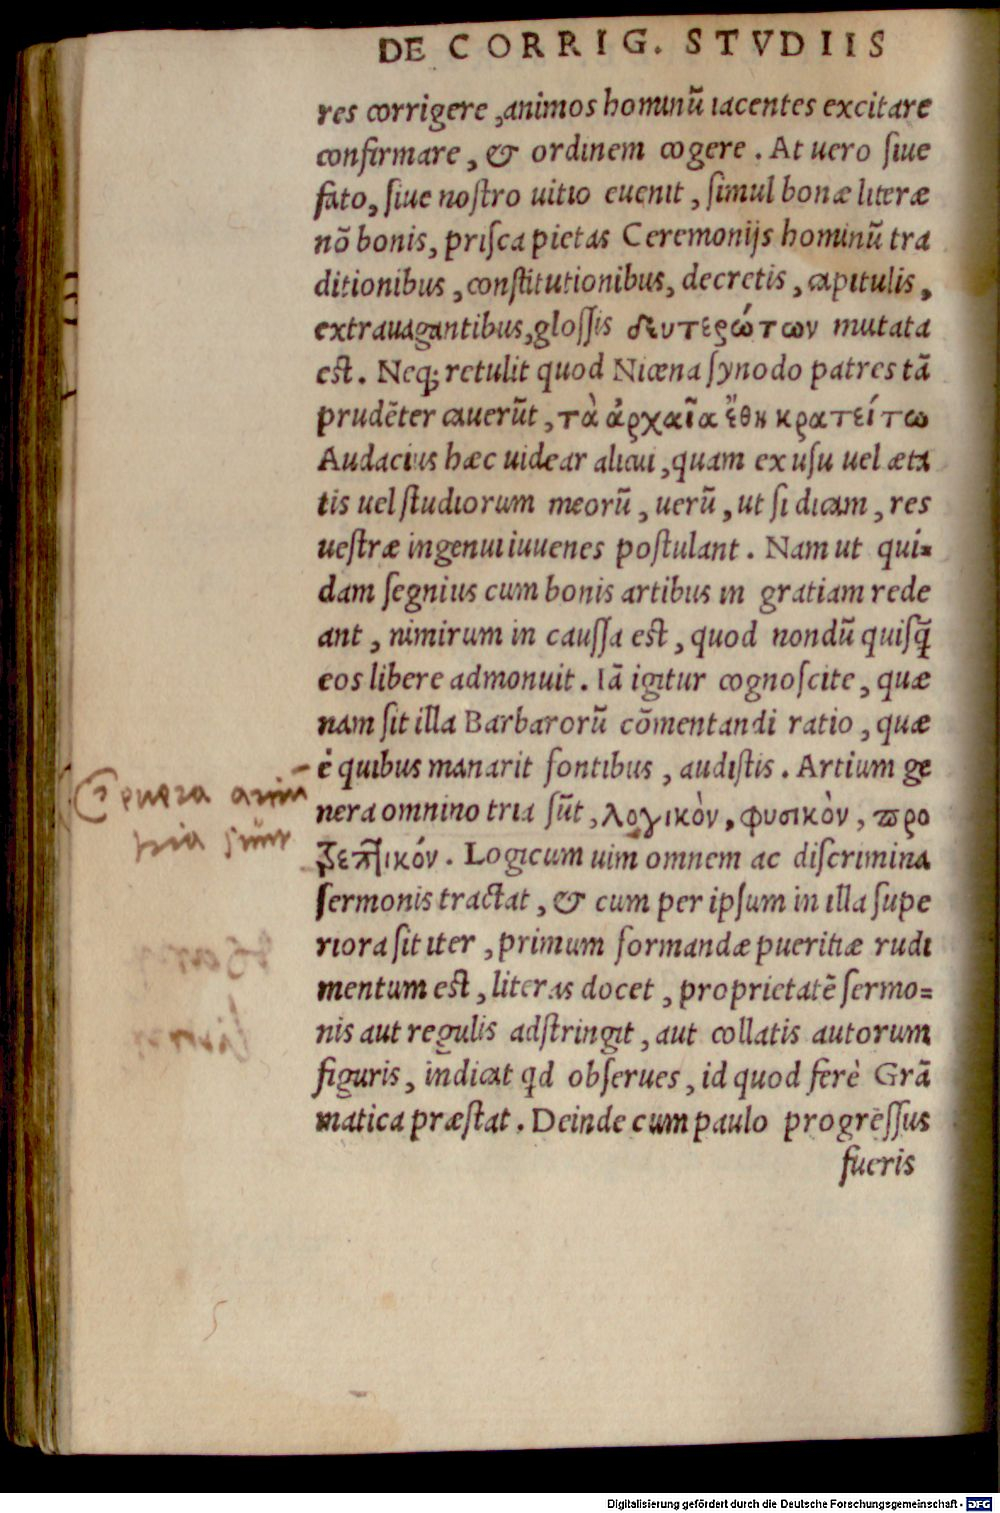 DE CORRIG. STVDIIS
res corrigere, animos hominũ iacentes excitare
confirmare, & ordinem cogere. At uero ſiue
fato, ſiue noſtro uitio euenit, ſimul bonæ literæ
nõ bonis, priſca pietas Ceremonijs hominũ tra
ditionibus, conſtitutionibus, decretis, capitulis,
extrauagantibus, gloſſis δευτερώτων mutata
eſt. Neq; retulit quod Nicæna ſynodo patres tã
prudẽter cauerũt, τὰ ἀρχαῖα ἔθη κρατείτω
Audacius hæc uidear alicui, quam ex uſu uel æta
tis uel ſtudiorum meorũ, uerũ, ut ſi dicam, res
ueſtræ ingenui iuuenes poſtulant. Nam ut qui=
dam ſegnius cum bonis artibus in gratiam rede
ant, nimirum in cauſſa eſt, quod nondũ quiſq̃
eos libere admonuit. Iã igitur cognoſcite, quæ
nam ſit illa Barbarorũ cõmentandi ratio, quæ
è quibus manarit fontibus, audiſtis. Artium ge
nera omnino tria ſũt, λογικὸν, φυσικὸν, προ
τρεπτικόν. Logicum uim omnem ac diſcrimina
ſermonis tractat, & cum per ipſum in illa ſupe
riora ſit iter, primum formandæ pueritiæ rudi
mentum eſt, literas docet, proprietatẽ ſermo=
nis aut regulis adſtringit, aut collatis autorum
figuris, indicat qd obſerues, id quod ferè Grã
matica præſtat. Deinde cum paulo progreſſus
fueris
tria ſunt
Digitalisierung gefördert durch die Deutsche Forschungsgemeinschaft - DFG